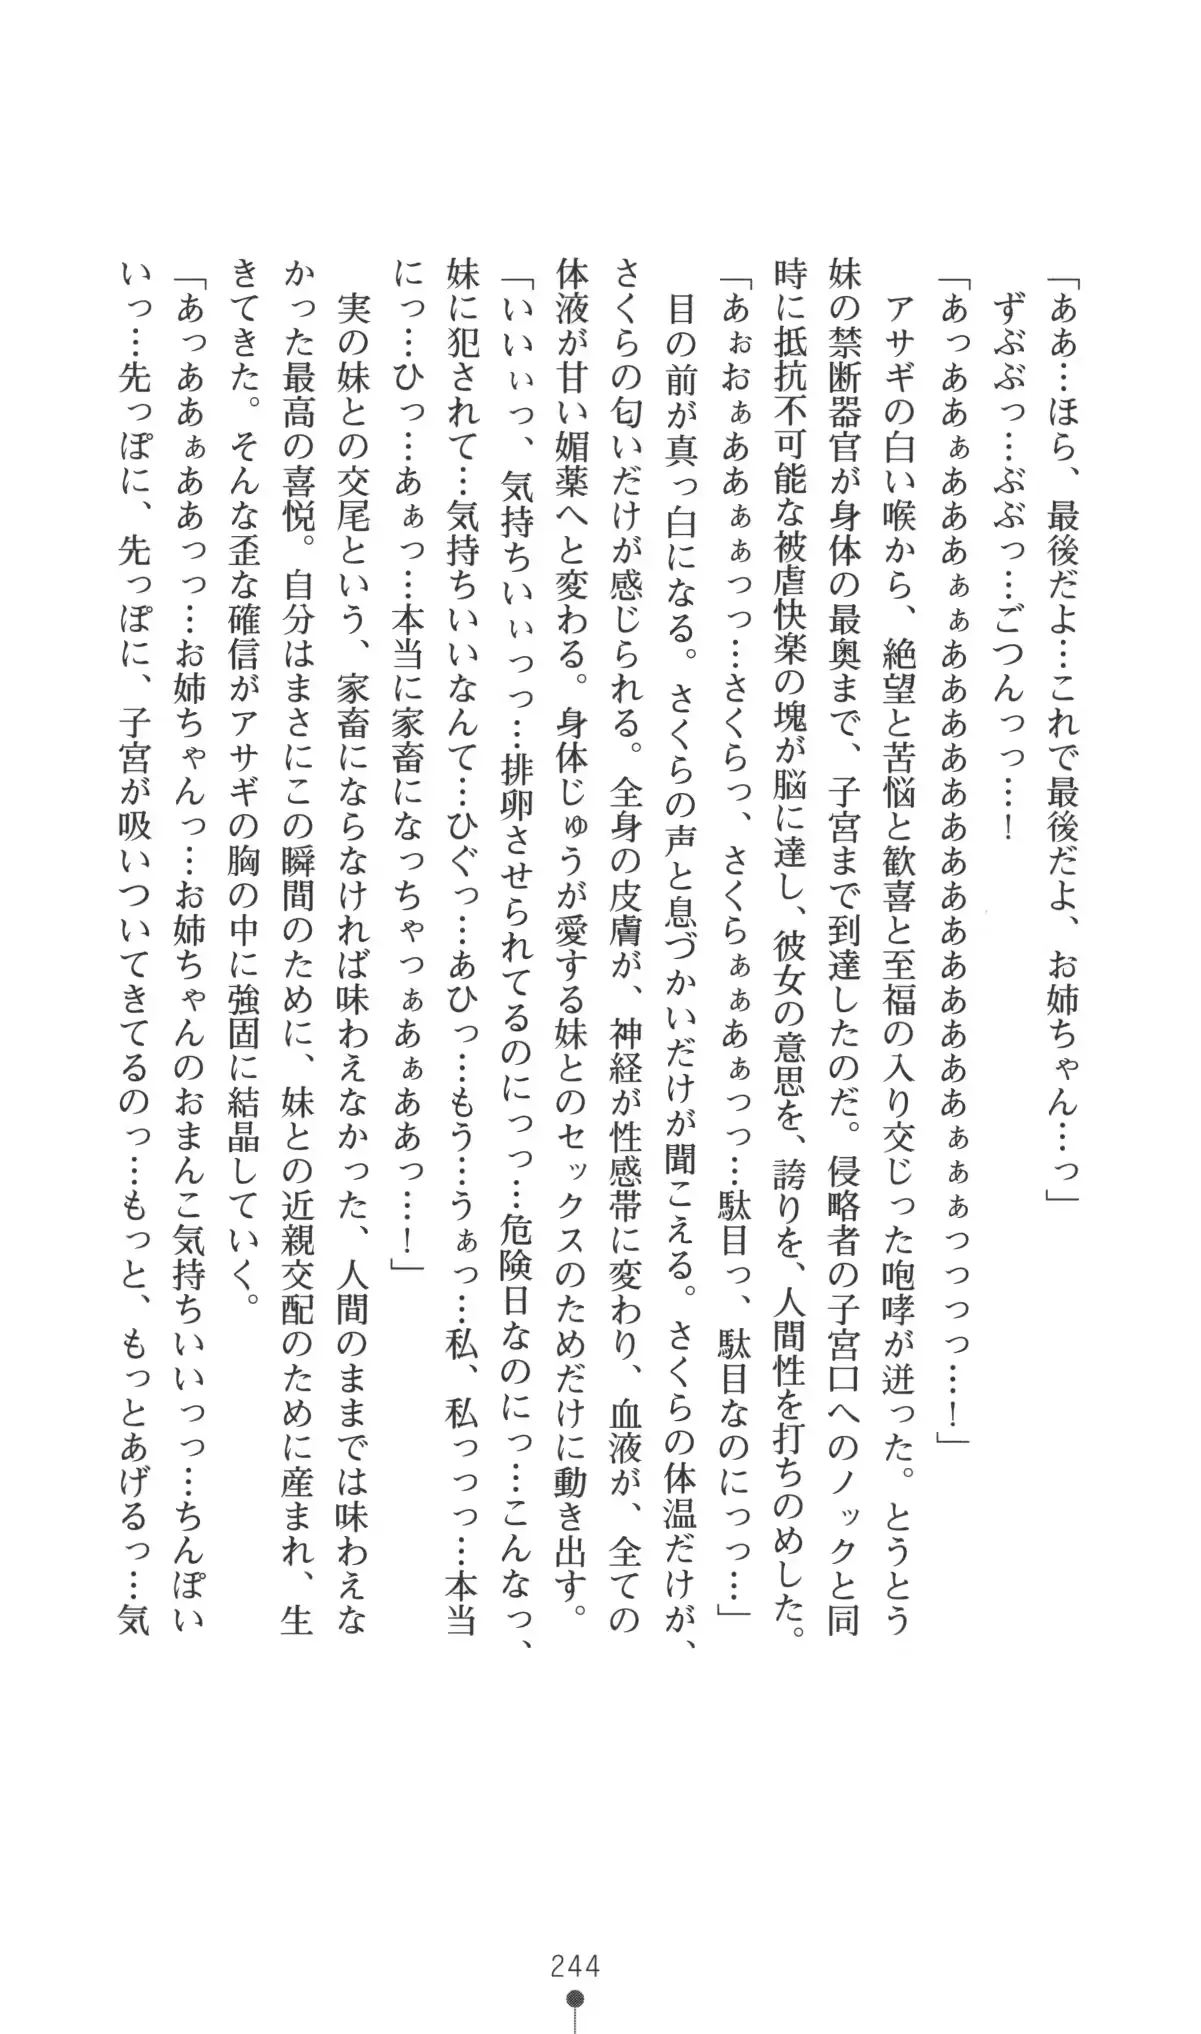 「ああ…ほら、最後だよ…これで最後だよ、お姉ちゃん…っ」
ずぶぶっ…ぶぶっ…ごつんっっ…！
「あっああぁあああぁぁあああああああああああああぁぁぁっっっっ…！」
アサギの白い喉から、絶望と苦悩と歓喜と至福の入り交じった咆哮が迸った。とうとう
妹の禁断器官が身体の最奥まで、子宮まで到達したのだ。侵略者の子宮口へのノックと同
時に抵抗不可能な被虐快楽の塊が脳に達し、彼女の意思を、誇りを、人間性を打ちのめした。
「あぉおぁああぁぁっっ…さくらっ、さくらぁぁあぁっっ…駄目っ、駄目なのにっっ…」
目の前が真っ白になる。さくらの声と息づかいだけが聞こえる。さくらの体温だけが、
さくらの匂いだけが感じられる。全身の皮膚が、神経が性感帯に変わり、血液が、全ての
体液が甘い媚薬へと変わる。身体じゅうが愛する妹とのセックスのためだけに動き出す。
「いいぃっ、気持ちいぃっっ…排卵させられてるのにっっ…危険日なのにっ…こんなっ、
妹に犯されて…気持ちいいなんて…ひぐっ…あひっ…もう…うぁっ…私、私っっっ…本当
にっ…ひっ…あぁっ…本当に家畜になっちゃっぁあぁああっ…！」
実の妹との交尾という、家畜にならなければ味わえなかった、人間のままでは味わえな
かった最高の喜悦。自分はまさにこの瞬間のために、妹との近親交配のために産まれ、生
きてきた。そんな歪な確信がアサギの胸の中に強固に結晶していく。
「あっああぁああっっ…お姉ちゃんっ…お姉ちゃんのおまんこ気持ちいいっっ…ちんぽい
いっ…先っぽに、先っぽに、子宮が吸いついてきてるのっ…もっと、もっとあげるっ…気
244